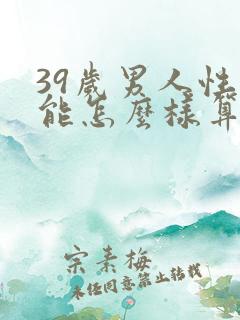 39歲男人性
能怎麼樣算
宗素梅
未經同意禁止轉載